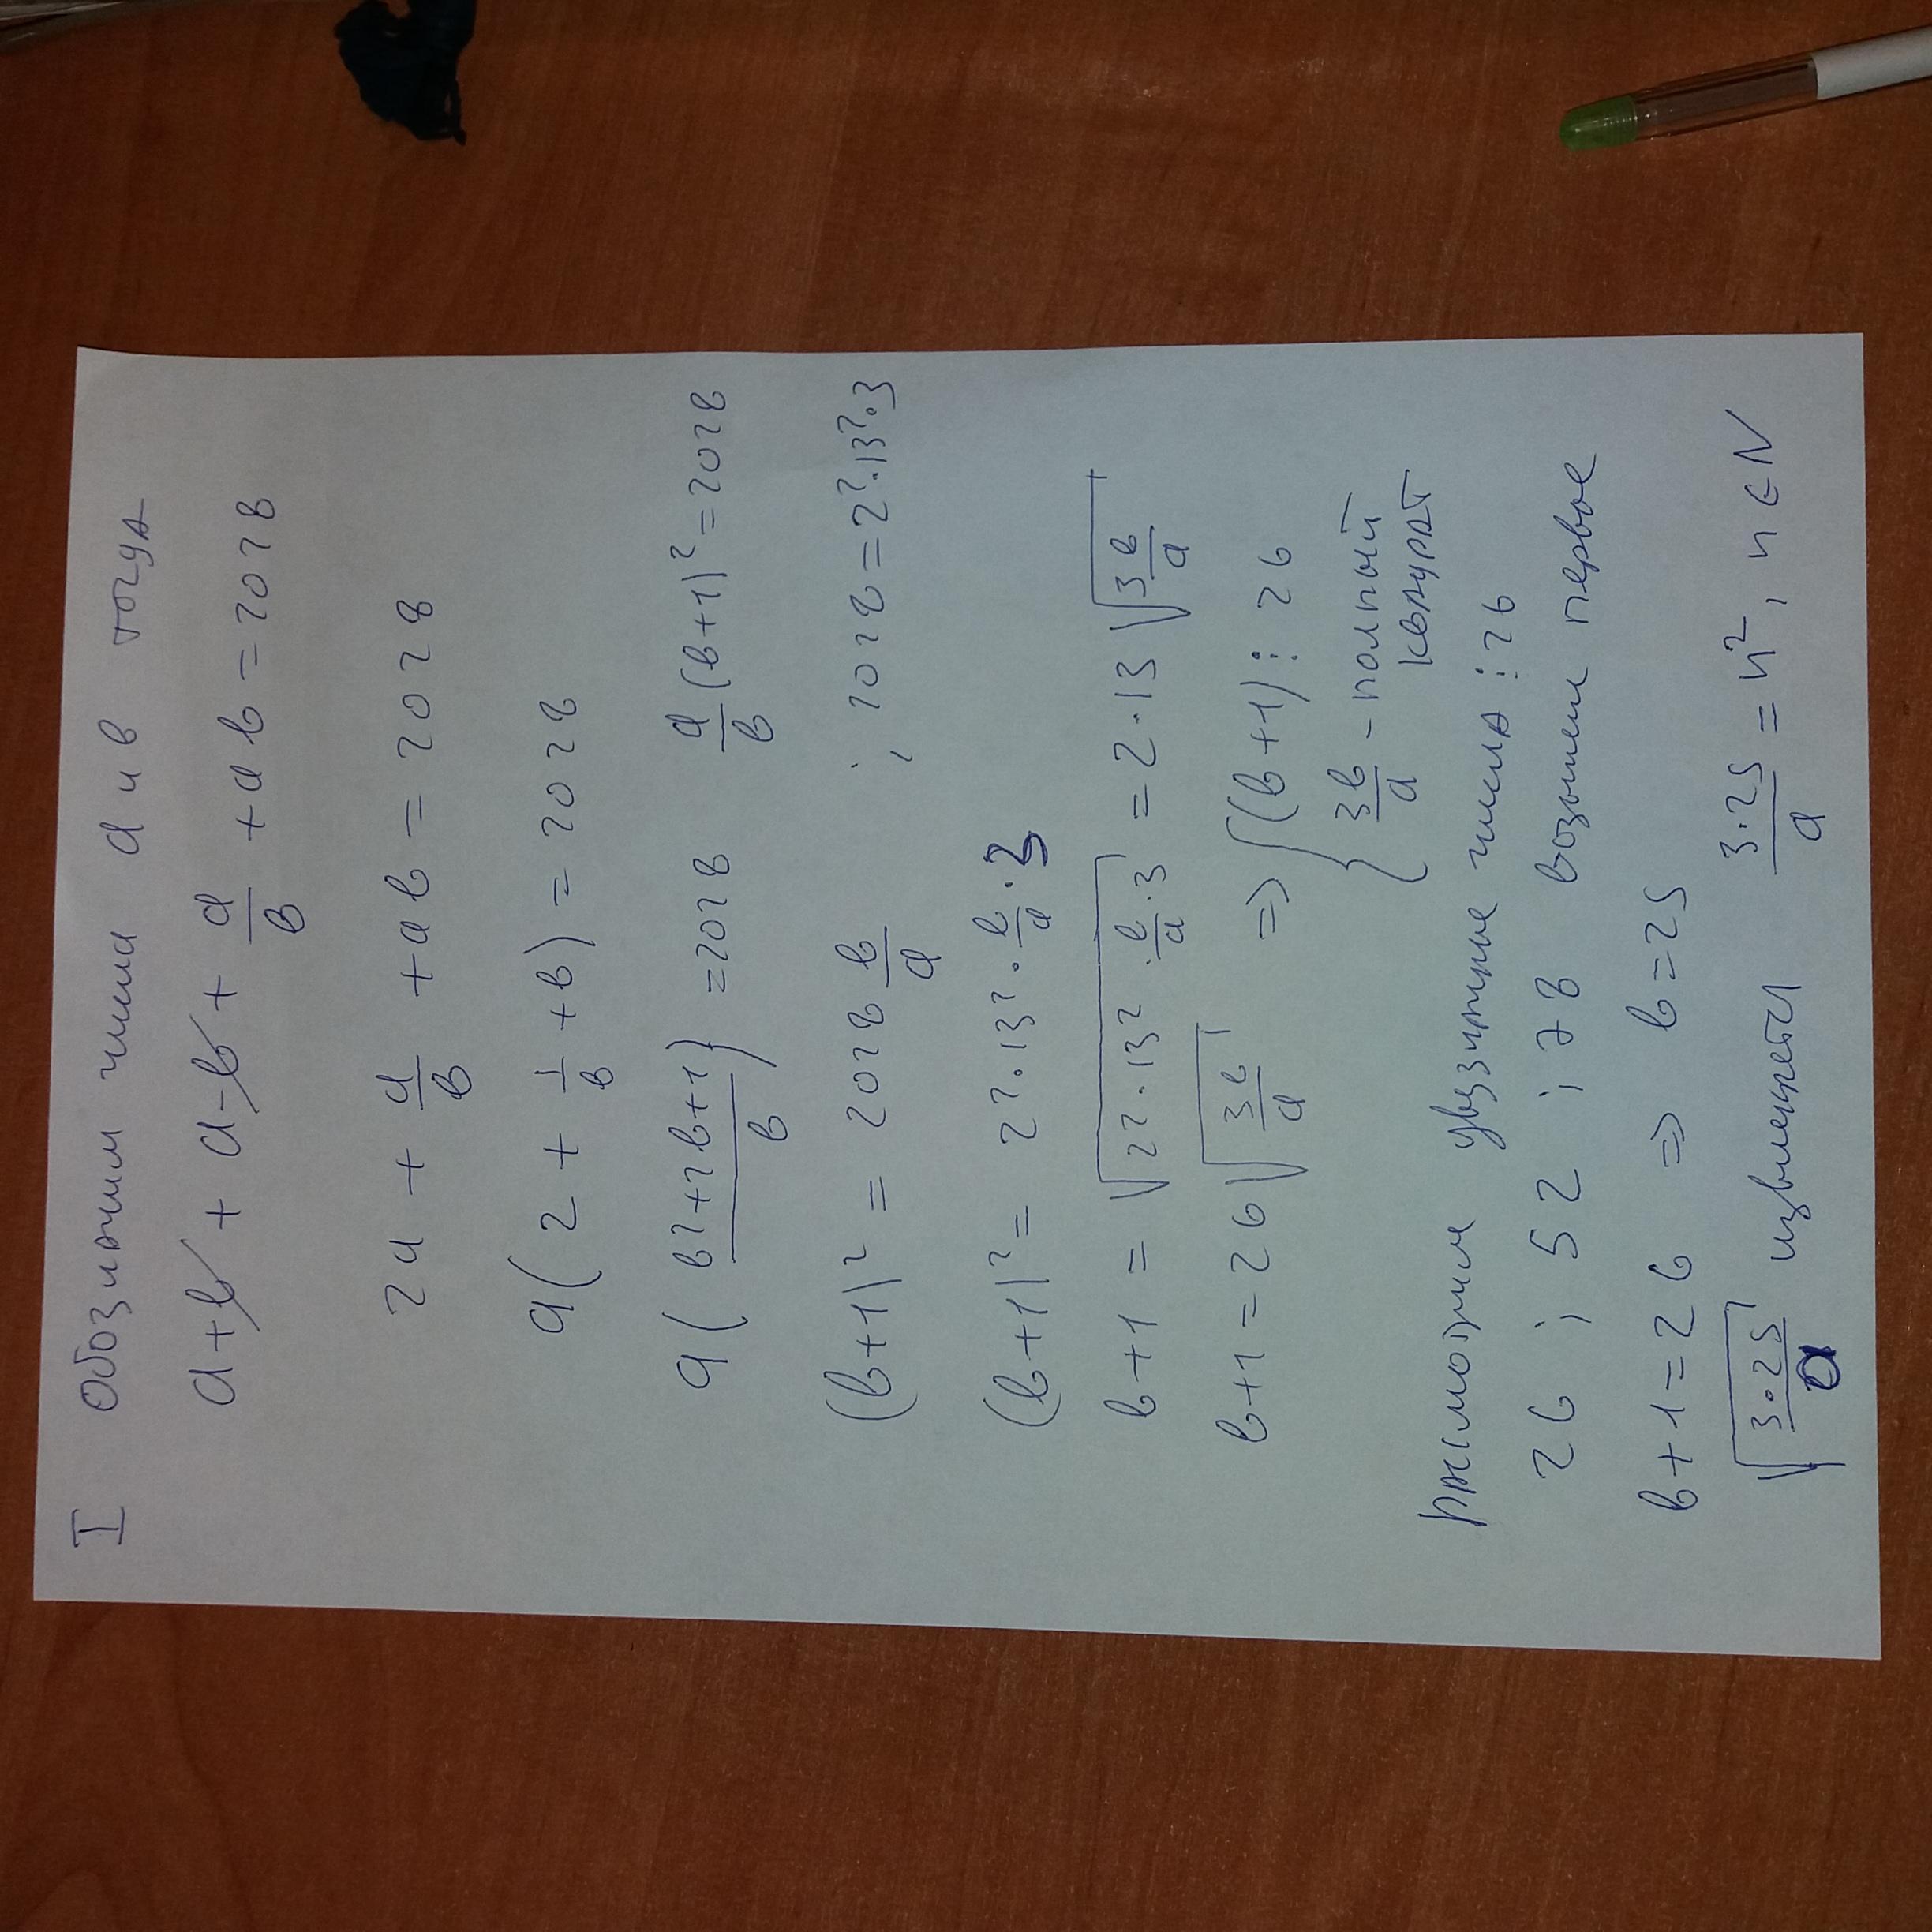 I Обозначим числа a и в тогда
a+в + a-в + a/в + aв = 2028
2a + a/в + aв = 2028
a(2 + 1/в + в) = 2028
a((в²+2в+1)/в) = 2028 a/в (в+1)² = 2028
(в+1)² = 2028 в/a ; 2028 = 2²·13²·3
(в+1)² = 2²·13²·в/a·3
в+1 = √(2²·13²·в/a·3) = 2·13 √(3в/a)
в+1 = 26 √(3в/a) => { (в+1) ⋮ 26
3в/a - полный квадрат
Рассмотрим двузначные числа ⋮ 26
26 ; 52 ; 78 возьмем первое
в+1 = 26 => в = 25
√(3·25/a) извлечется 3·25/a = n², n ∈ N